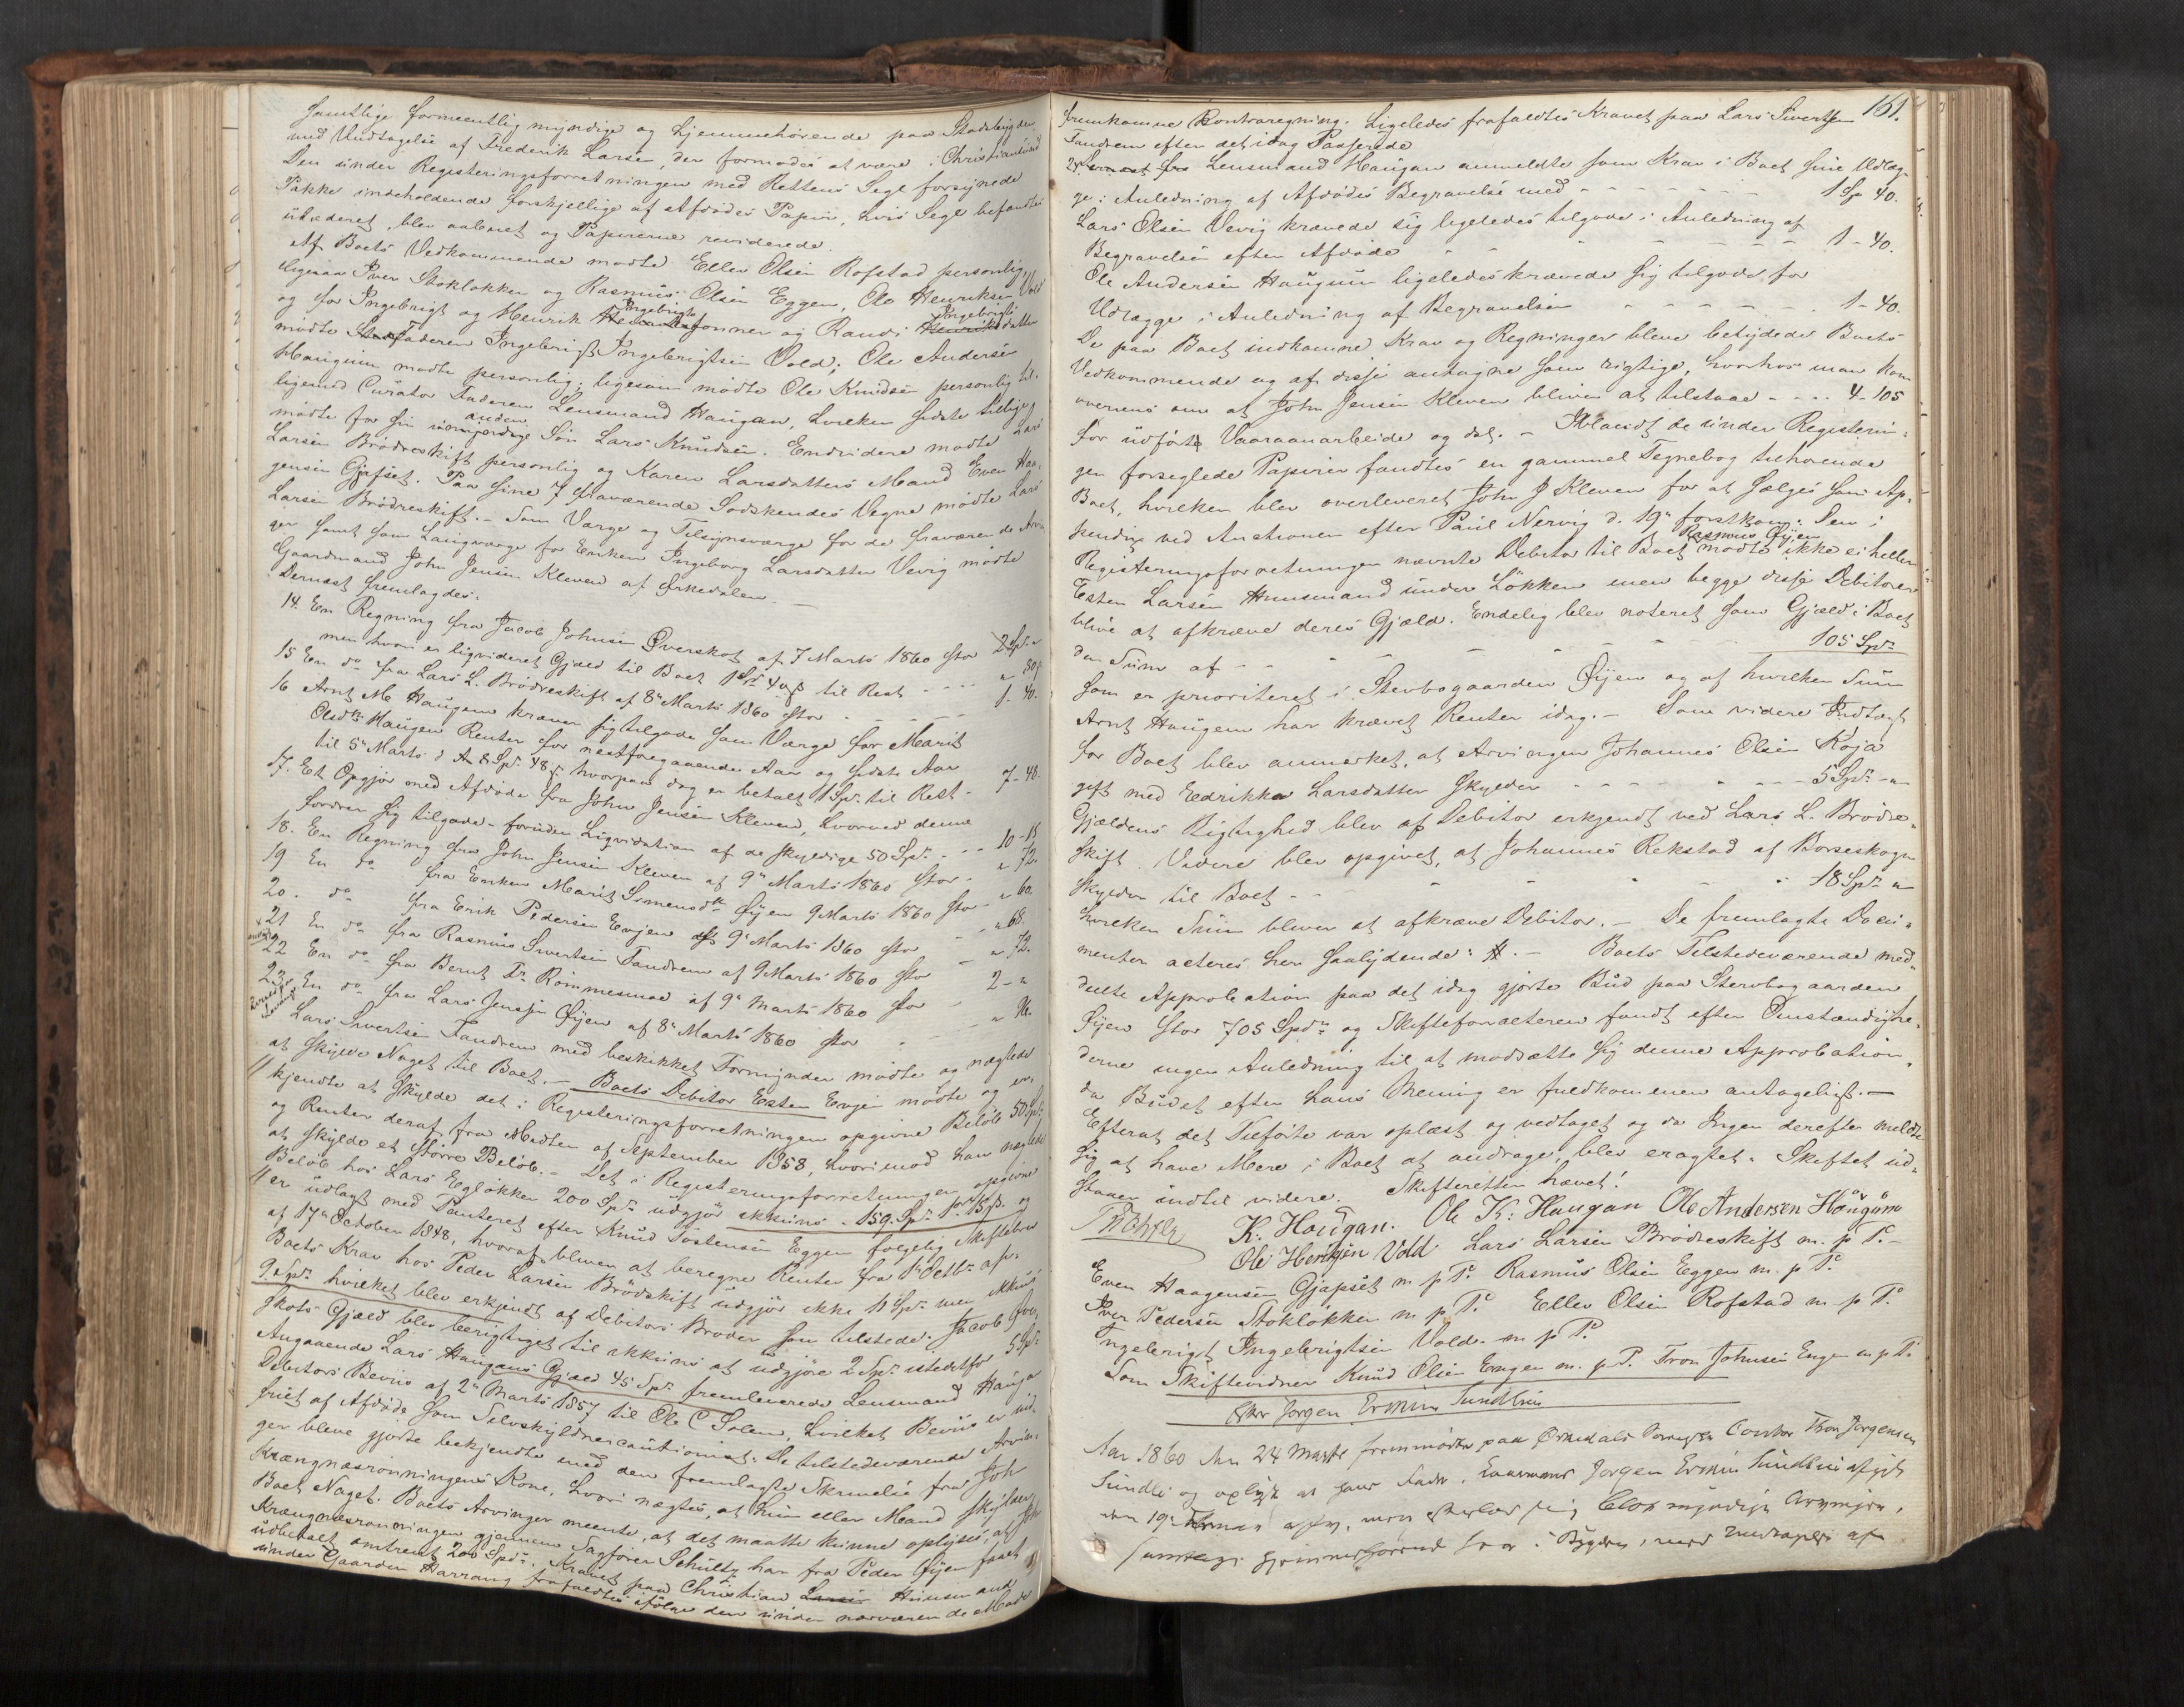 samtlige formeentlig myndige og hjemmehørende paa Stadsbygden
med Undtagelse af Frederik Larsen, der formodes at være i Christiansund
Den under Registeringsforretningen med Rettens Segl forsynede
Pakke indeholdende forskjellige af Afdødes Papirer, hvis Segl befandtes
ubeskadiget, blev aabnet og Papirerne reviderede.
Af Boets Vedkommende mødte Ellev Olsen Rofstad personlig,
ligesaa Iver Stokløkken og Rasmus Olsen Eggen, Ole Henriksen Vold
og for Ingebrigt og Henrik Ingebrigtssønner og Randi Ingebrigtsdatter
mødte Faderen Ingebrigt Ingebrigtsen Vold; Ole Andersen
Haugum mødte personlig; ligesom mødte Ole Knudsen personlig til-
ligemed Curator Faderen Lensmand Haugan, hvilken sidste tillige
mødte for sin anden Søn Lars Knudsen. Endvidere mødte Lars
Larsen Brødreskift personlig og Karen Larsdatters Mand Even Haa-
gensen Gjafset. Paa sine 7 fraværende Sødskendes Vegne mødte Lars
Larsen Brødreskift. – Som Værge og Tilsynsværge for de fraværende Arvin-
ger samt som Laugværge for Enken Ingeborg Larsdatter Vevig mødte
Gaardmand John Jensen Kleven af Ørkedalen –
Dernæst fremlagdes:
14. En Regning fra Jacob Johnsen Øverskot af 7 Marts 1860 stor 2 Sp. "
men hvori er ligvideret Gjæld til Boet til Rest - - - -
15 En do fra Lars L. Brødreskift af 8de Marts 1860 stor - - - 1. 40.
16 Arnt M. Haugen kræver sig tilgode som Værge for Marit
Olsdtr Haugen Renter for næstforegaaende Aar og sidste Aar
til 5te Marts d. A. 8 Spd. 48 ß hvorpaa dog er betalt 1 Spd. til Rest - 7-48.
17. Et Opgjør med Afdøde fra John Jensen Kleven, hvorved denne
fordrer sig tilgode foruden Ligvidation af de skyldige 50 Spd. - - 10-18
18. En Regning fra John Jensen Kleven af 9de Marts 1860 stor - " 72.
19 En do fra Enken Marit Simensdtr Øyen 9 Marts 1860 stor - " 60.
20. do fra Erik Pedersen Evjen af 9de Marts 1860 stor - - " 68.
21 En do fra Rasmus Sivertsen Fandrem af 9 Marts 1860 stor - " 72.
22 En do fra Bernt Dr. Rømmesmoe af 9de Marts 1860 stor 2 - "
23. En do fra Lars Jensen Øyen af 8de Marts 1860 stor - - " 96.
Lars Sivertsen Fandrem med beskikket Formynder mødte og nægtede
at skylde Noget til Boet. – Boets Debitor Esten Evjen mødte og er-
kjendte at skylde det i Registeringsforretningen opgivne Beløb 50 Spd.
og Renter deraf fra Midten af September 1858, hvorimod han nægtede
at skylde et større Beløb. – Det i Registeringsforretningen opgivne
Beløb hos Lars Egløkken 200 Spd. udgjør ikkuns 159 Spd. 1 15 ß. og
er udlagt med Panteret efter Knud Tostensen Eggen følgelig Skiftebrev
af 17de October 1848, hvoraf bliver at beregne Renter fra 1ste Octbr. af.
Boets Krav hos Peder Larsen Brødskift udgjør ikke 11 Spd. men ikkuns
9 Spd. hvilket blev erkjendt af Debitors Broder som tilstede. Jacob Øver-
skots Gjæld blev berigtiget til ikkuns at udgjøre 2 Spd. istedetfor 5 Spd.
Angaaende Lars Haugans Gjæld 45 Spd. fremleverede Lensmand Haugan
Debitors Beviis af 2den Marts 1857 til Ole C Solem, hvilket Beviis er ind-
friet af Afdøde som Selvskyldnercautionist. De tilstedeværende Arvin-
ger bleve gjorte bekjendte med den fremlagte Skrivelse fra Joh
Krængnæsrønningens Kone, hvori nægtes, at hun eller Mand skylder
Boet Noget. Boets Arvinger meente, at det maatte kunne oplyses, at Joh
Krængnæsrønningen gjennem Sagfører Schultz har fra Peder Øyen faaet
udbetalt omtrent 200 Spd. Kravet paa Christian Huusmand
under Gaarden Harrang frafaldtes ifølge den under nærværende Møde
161.
fremkomne Kontraregning. Ligeledes frafaldtes Kravet paa Lars Sivertsen
Fandrem efter det idag Passerede
24. Lensmand Haugan anmeldte som Krav i Boet sine Udlæg-
ge i Anledning af Afdødes Begravelse med - - - - - - 1 Sp 40.
Lars Olsen Vevig krævede sig ligeledes tilgode i Anledning af
Begravelsen efter Afdøde - - - - - - - 1 - 40.
Ole Andersen Haugum ligeledes krævede sig tilgode for
Udlægge i Anledning af Begravelsen - - - - - 1 - 40.
De paa Boet indkomne Krav og Regninger bleve betydede Boets
Vedkommende og af disse antagne som rigtige, hvorhos man kom
overens om at John Jensen Kleven bliver at tilstaae - - - - 4 - 105
for udført Vaaraanarbeide og det. – Iblandt de under Registerin-
gen forseglede Papirer fandtes en gammel Tegnebog tilhørende
Boet, hvilken blev overleveret John J Kleven for at sælges som Ap-
pendix ved Auctionen efter Paul Nervig d. 19de førstkom. Den i
Registeringsforretningen nævnte Debitor til Boet Rasmus Øyen mødte ikke ei heller
Esten Larsen Huusmand under Løkken men begge disse Debitorer
blive at afkræve deres Gjæld. Endelig blev noteret som Gjæld i Boet
den Sum af - - - - - - - 105 Spd.
som er prioriteret i Stervbogaarden Øyen og af hvilken Sum
Arnt Haugen har krævet Renter idag. – Som videre Indtægt
for Boet blev anmærket, at Arvingen Johannes Olsen Roja
gift med Edrikke Larsdatter skylder - - - - - - 5 Spd. - "
Gjældens Rigtighed blev af Debitor erkjendt ved Lars L. Brødre-
skift. Videre blev opgivet, at Johannes Rekstad af Børseskogn
skylder til Boet - - - - - - 18 Spd. "
hvilken Sum bliver at afkræve Debitor. – De fremlagte Docu-
menter acteres her saalydende: #. – Boets Tilstedeværende med-
deelte Approbation paa det idag gjorte Bud paa Stervbogaarden
Øyen stor 705 Spdr. og Skifteforvalteren fandt efter Omstændighe-
derne ingen Anledning til at modsætte sig denne Approbation,
da Budet efter hans Mening er fuldkommen antageligt. –
Efterat det Tilførte var oplæst og vedtaget og da Ingen derefter meldte
sig at have Mere i Boet at andrage, blev eragtet: Skiftet ud-
staaer indtil videre. Skifteretten hævet!
K: Haugan. Ole K: Haugan Ole Andersen Haugum
Ole Henrigsen Vold Lars Larsen Brødreskift m. p. P. –
Even Haagensen Gjapset m. p. P. Rasmus Olsen Eggen m. p. P.
Iver Pedersen Stokløkken m. p. P. Ellev Olsen Rofstad m. p. P.
Ingebrigt Ingebrigtsen Vold. m. p. P.
Som Skiftevidner Knud Olsen Engen m. p. P. Tron Johnsen Engen m. p. P.
Efter Jørgen Sundlien
Aar 1860 den 24 Marts fremmødte paa Ørkedals Contor Thore Jørgensen
Sundli og oplyste at hans Fader, Gaardmand Jørgen Sundlien afgik
den 19de ved Døden, men efterlod sig blot myndige Arvinger,
samtlige hjemmehørende her i Bygden, med Undtagelse af